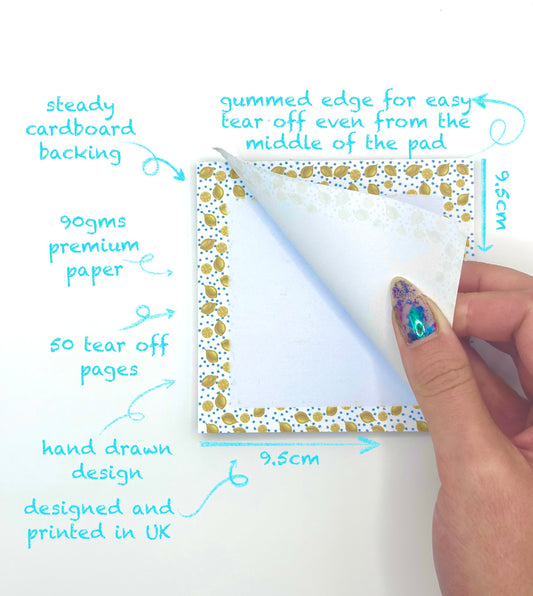 steady
cardboard
backing
gummed edge for easy
tear off even from the
middle of the pad
9.5cm
90gms
premium
paper
50 tear off
pages
hand drawn
design
9.5cm
designed and
printed in UK